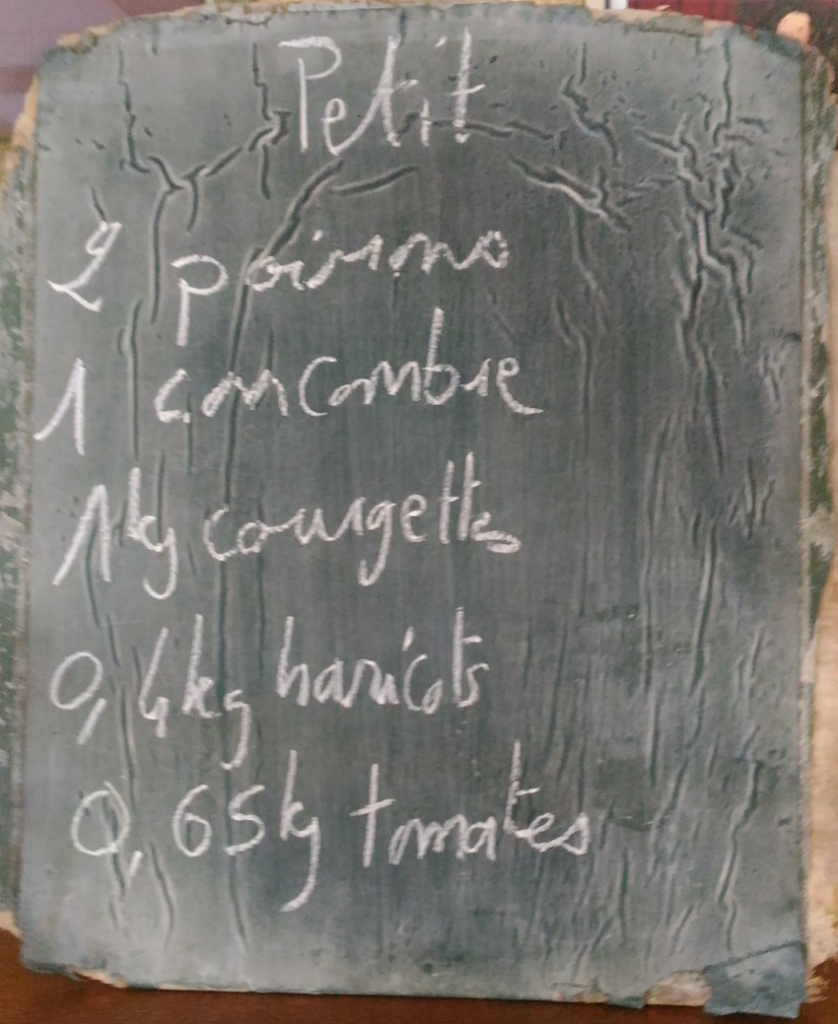 Petit
2 poivrons
1 concombre
1kg courgettes
0,4kg haricots
0,65kg tomates